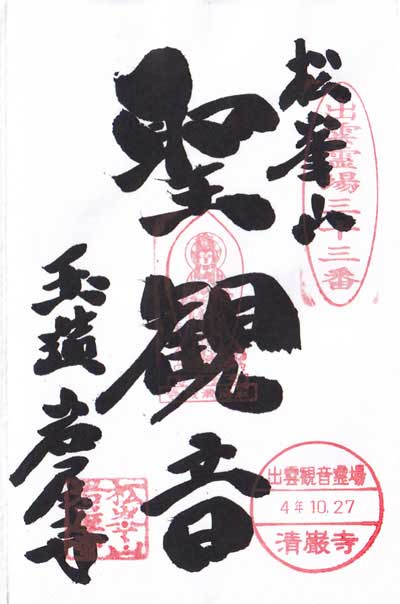 出雲霊場三十三番
松峯山
聖観音
玉造 岩屋寺
出雲観音霊場
4年10.27
清巌寺